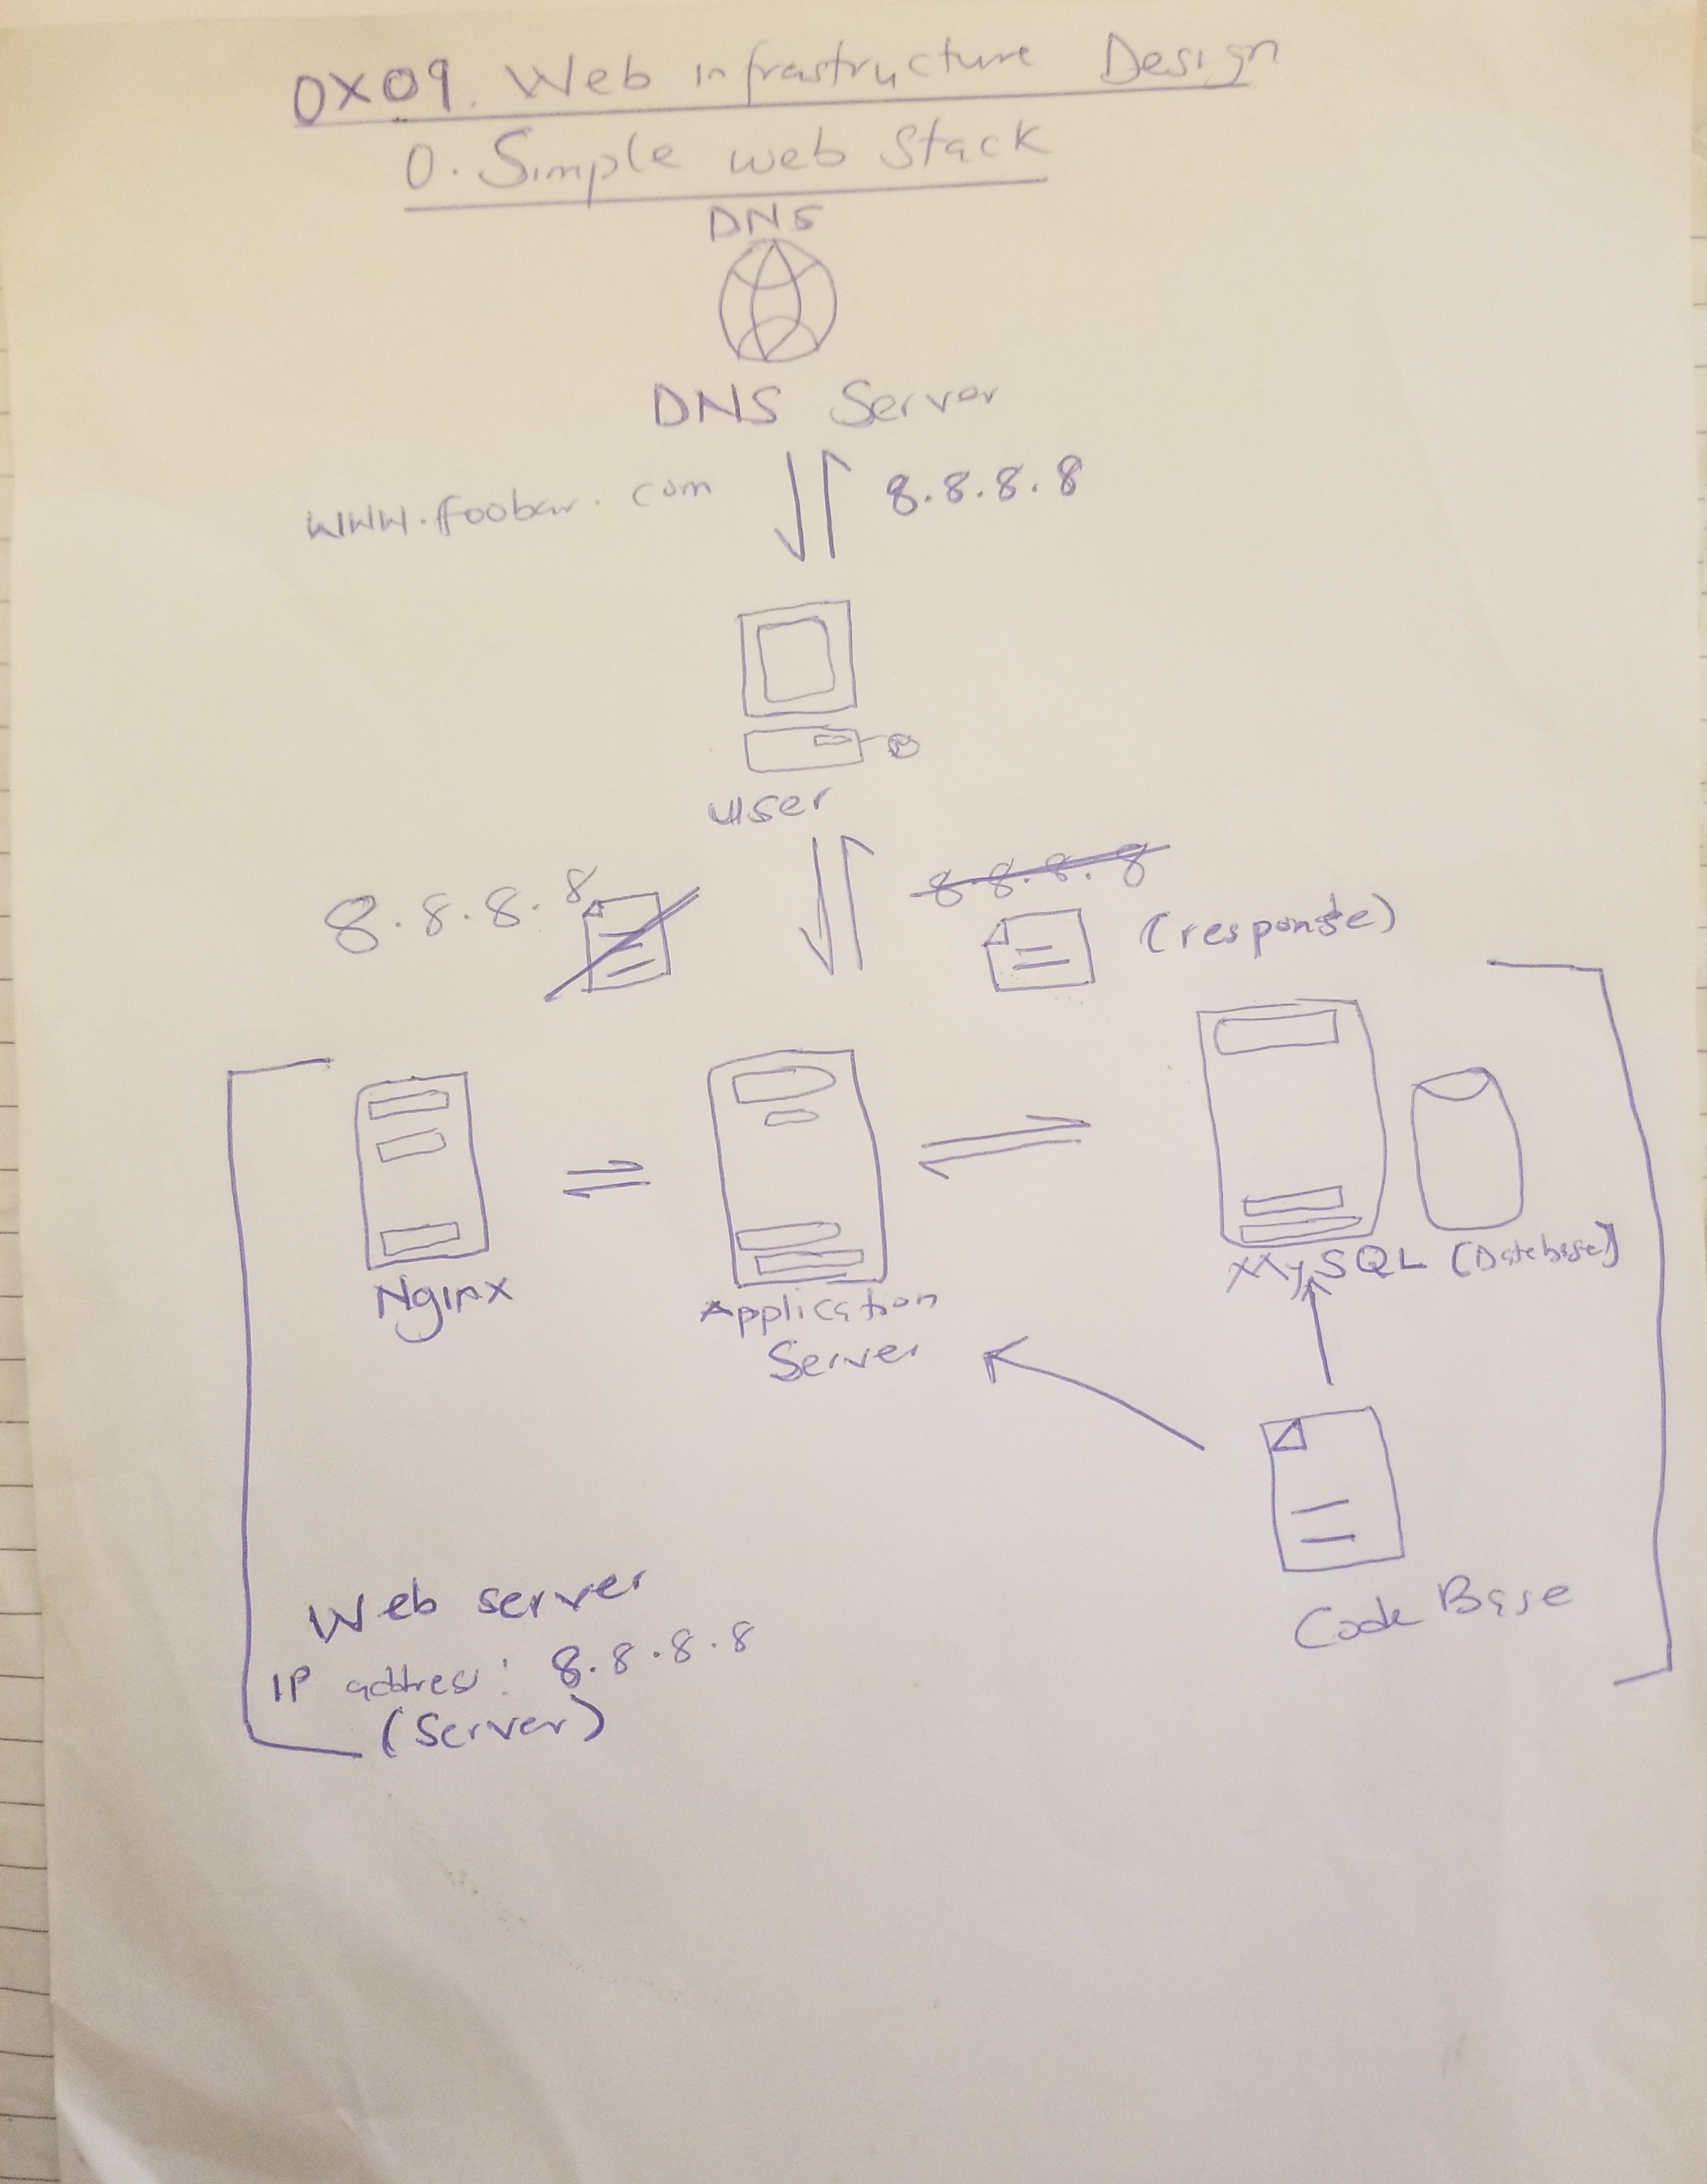 0X09. Web infrastructure Design
0. Simple web Stack
DNS
DNS Server
www.foobar.com
8.8.8.8
user
8.8.8.8
8.8.8.8
(response)
Nginx
Application
Server
MySQL (Database)
Code Base
Web server
IP address: 8.8.8.8
(Server)